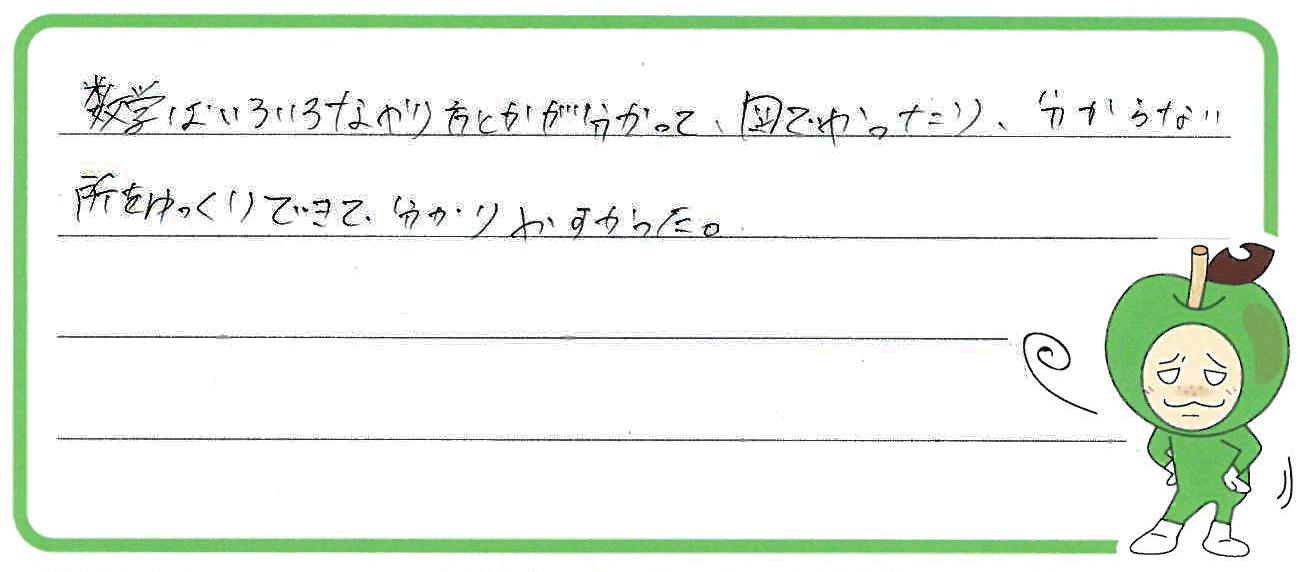 数学はいろいろなやり方とかが分かって、図でやったり、分からない
所をゆっくりできて、分かりやすかった。